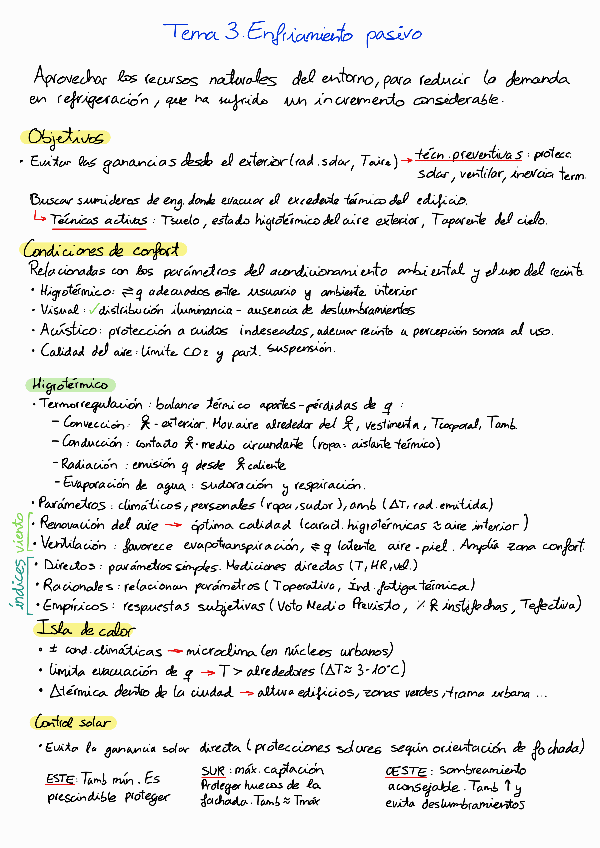 Tema 3. Enfriamiento pasivo
Aprovechar los recursos naturales del entorno, para reducir la demanda
en refrigeración, que ha sufrido un incremento considerable.
Objetivos
· Evitar las ganancias desde el exterior (rad. solar, Taire) → técn. preventivas: protecc.
solar, ventilar, inercia term.
Buscar sumideros de eng. donde evacuar el excedente térmico del edificio.
↳ Técnicas activas: Tsuelo, estado higrotérmico del aire exterior, Taparente del cielo.
Condiciones de confort
Relacionadas con los parámetros del acondicionamiento ambiental y el uso del recinto
· Higrotérmico: ⇌ q adecuados entre usuario y ambiente interior
· Visual: ✓ distribución iluminancia - ausencia de deslumbramientos
· Acústico: protección a ruidos indeseados, adecuar recinto a percepción sonora al uso.
· Calidad del aire: límite CO2 y part. suspensión.
Higrotérmico
· Termorregulación: balance térmico aportes-pérdidas de q:
- Convección: - exterior. Mov. aire alrededor del , vestimenta, Tcorporal, Tamb.
- Conducción: contacto - medio circundante (ropa: aislante térmico)
- Radiación: emisión q desde caliente
- Evaporación de agua: sudoración y respiración.
· Parámetros: climáticos, personales (ropa, sudor), amb (ΔT, rad. emitida)
viento
· Renovación del aire → óptima calidad (caract. higrotérmicas ≈ aire interior)
· Ventilación: favorece evapotranspiración, ⇌ q latente aire-piel. Amplía zona confort.
índices
· Directos: parámetros simples. Mediciones directas (T, HR, vel.)
· Racionales: relacionan parámetros (Toperativa, Ind. fatiga térmica)
· Empíricos: respuestas subjetivas (Voto Medio Previsto, % insatisfechas, Tefectiva)
Isla de calor
· ± cond. climáticas → microclima (en núcleos urbanos)
· limita evacuación de q → T > alrededores (ΔT ≈ 3-10°C)
· Δtérmica dentro de la ciudad → altura edificios, zonas verdes, trama urbana ...
Control solar
· Evita la ganancia solar directa (protecciones solares según orientación de fachada)
ESTE: Tamb mín. Es
prescindible proteger
SUR: máx. captación
Proteger huecos de la
fachada. Tamb ≈ Tmáx
OESTE: sombreamiento
aconsejable. Tamb ↑ y
evita deslumbramientos